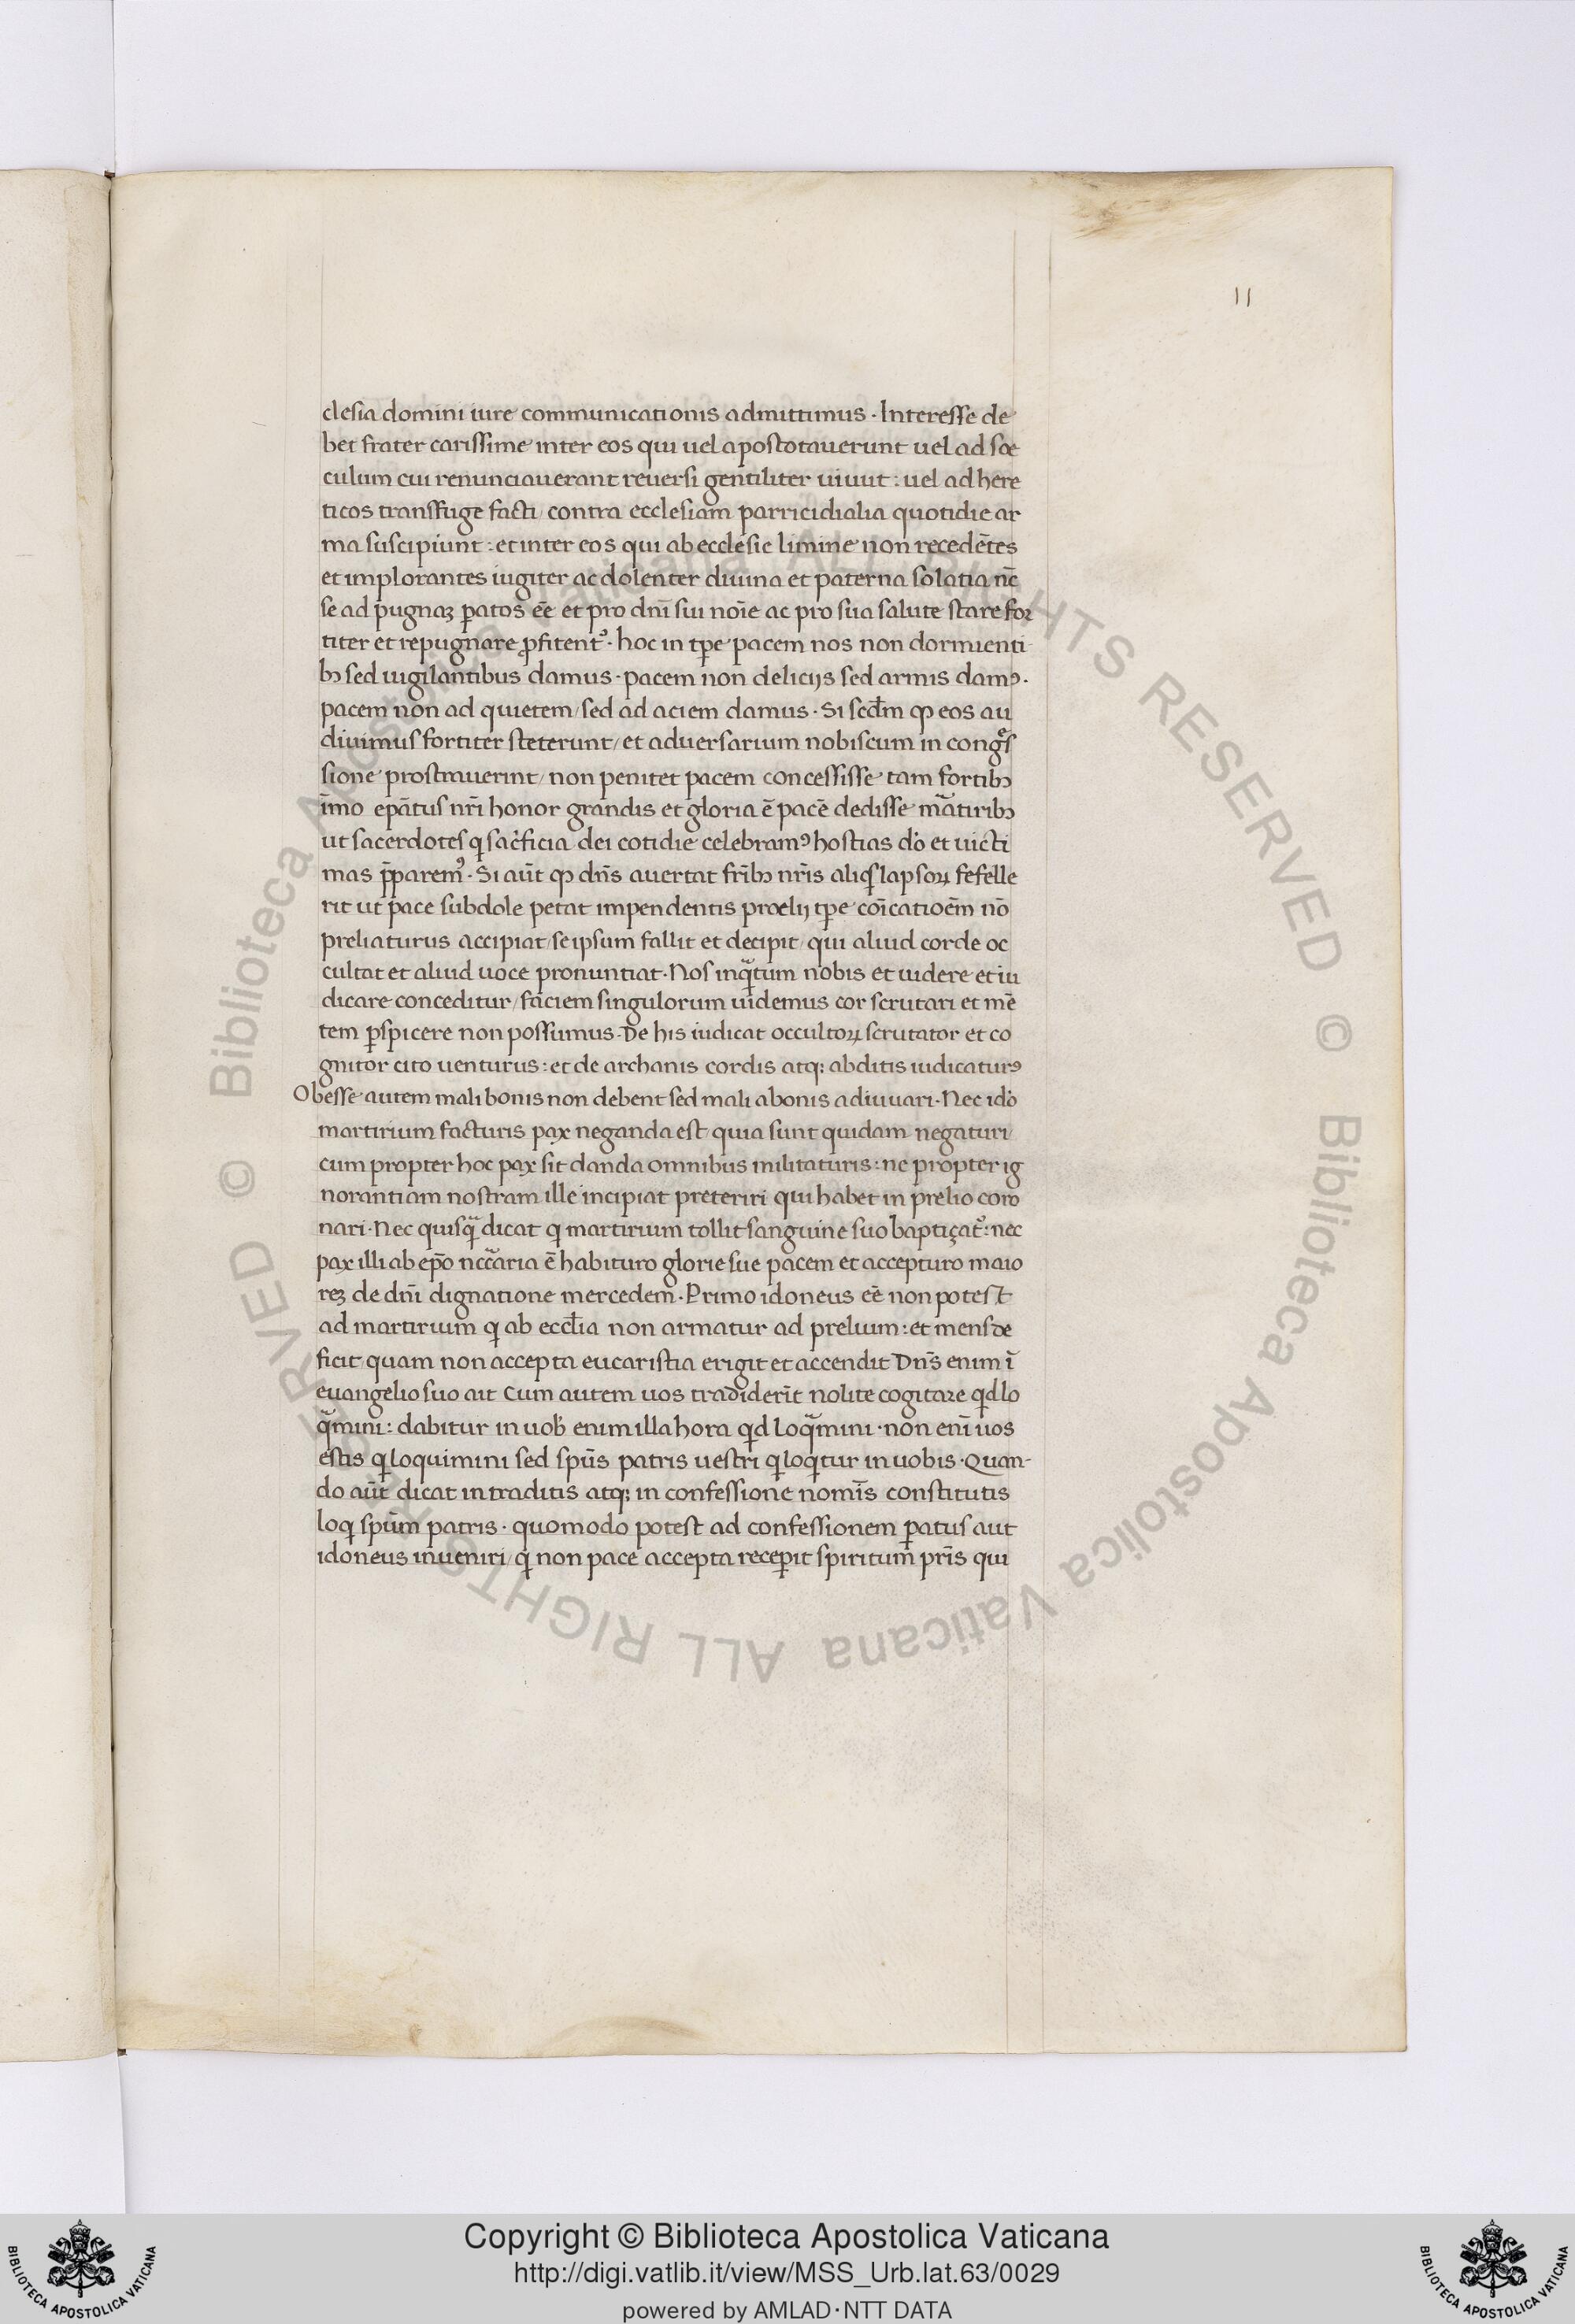 11
clesia domini iure communicationis admittimus · Interesse de
bet frater carissime inter eos qui uel apostotauerunt uel ad sæ
culum cui renunciauerant reuersi gentiliter uiuut : uel ad here
ticos transfuge facti / contra ecclesiam parricidialia quotidie ar
ma suscipiunt : et inter eos qui ab ecclesie limine non recedētes
et implorantes iugiter ac dolenter diuina et paterna solatia nc̄
se ad pugnaꝫ ꝑatos ēe et pro dnī sui noīe ac pro sua salute stare foꝛ
titer et repugnare ꝓfitentᷣ · hoc in tꝑe pacem nos non dormienti
bꝫ sed uigilantibus damus · pacem non delicijs sed armis damꝰ ·
pacem non ad quietem / sed ad aciem damus · Si scdm̄ ꝙ eos au
diuimus fortiter steterunt / et aduersarium nobiscum in congͤs
sione prostrauerint / non penitet pacem concessisse tam fortibꝫ
īmo epātus nr̄i honor grandis et gloria ē pacē dedisse māatiribꝫ
ut sacerdotes qͥ sacͥficia dei cotidie celebramꝰ hostias dō et uicti
mas p̄ꝑaremꝰ · Si aūt ꝙ dn̄s auertat fr̄ibꝫ nr̄is aliqͥs lapsoꝝ fefelle
rit ut pace subdole petat impendentis prœlij tꝑe coīcatioēm nō
preliaturus accipiat / se ipsum fallit et decipit / qui aliud corde oc
cultat et aliud uoce pronuntiat · Nos inqᷓtum nobis et uidere et iu
dicare conceditur / faciem singulorum uidemus cor scrutari et mē
tem ꝑspicere non possumus · De his iudicat occultoꝝ scrutator et co
gnitor cito uenturus : et de archanis cordis atqꝫ abditis iudicaturꝰ
Obesse autem mali bonis non debent sed mali a bonis adiuuari · Nec idō
martirium facturis pax neganda est quia sunt quidam negaturi
cum propter hoc pax sit danda omnibus militaturis : ne propter ig
norantiam nostram ille incipiat preteriri qui habet in prelio coro
nari · Nec quisqᷓ dicat qͥ martirium tollit sanguine suo baptiçatᷣ : nec
pax illi ab epō nccᷓaria ē habituro glorie sue pacem et accepturo maio
reꝫ de dnī dignatione mercedem · Primo idoneus ēe non potest
ad martirium qͥ ab eccłia non armatur ad prelium : et mens de
ficit quam non accepta eucaristia erigit et accendit Dn̄s enim ī
euangelio suo ait Cum autem uos tradiderīt nolite cogitare qͥd lo
qᷓmini : dabitur in uob̄ enim illa hora qͥd loqᷓmini · non enī uos
estis qͥ loquimini sed spūs patris uestri qͥ loqͥtur in uobis · Quan-
do aūt dicat in traditis atqꝫ in confessione nomīs constitutis
loqͥ spūm patris · quomodo potest ad confessionem ꝑatus aut
idoneus inueniri / qͥ non pace accepta receꝑit spiritum pr̄is qui
Copyright © Biblioteca Apostolica Vaticana
http://digi.vatlib.it/view/MSS_Urb.lat.63/0029
powered by AMLAD·NTT DATA
BIBLIOTECA APOSTOLICA VATICANA
BIBLIOTECA APOSTOLICA VATICANA
© Biblioteca Apostolica Vaticana ALL RIGHTS RESERVED
© Biblioteca Apostolica Vaticana ALL RIGHTS RESERVED